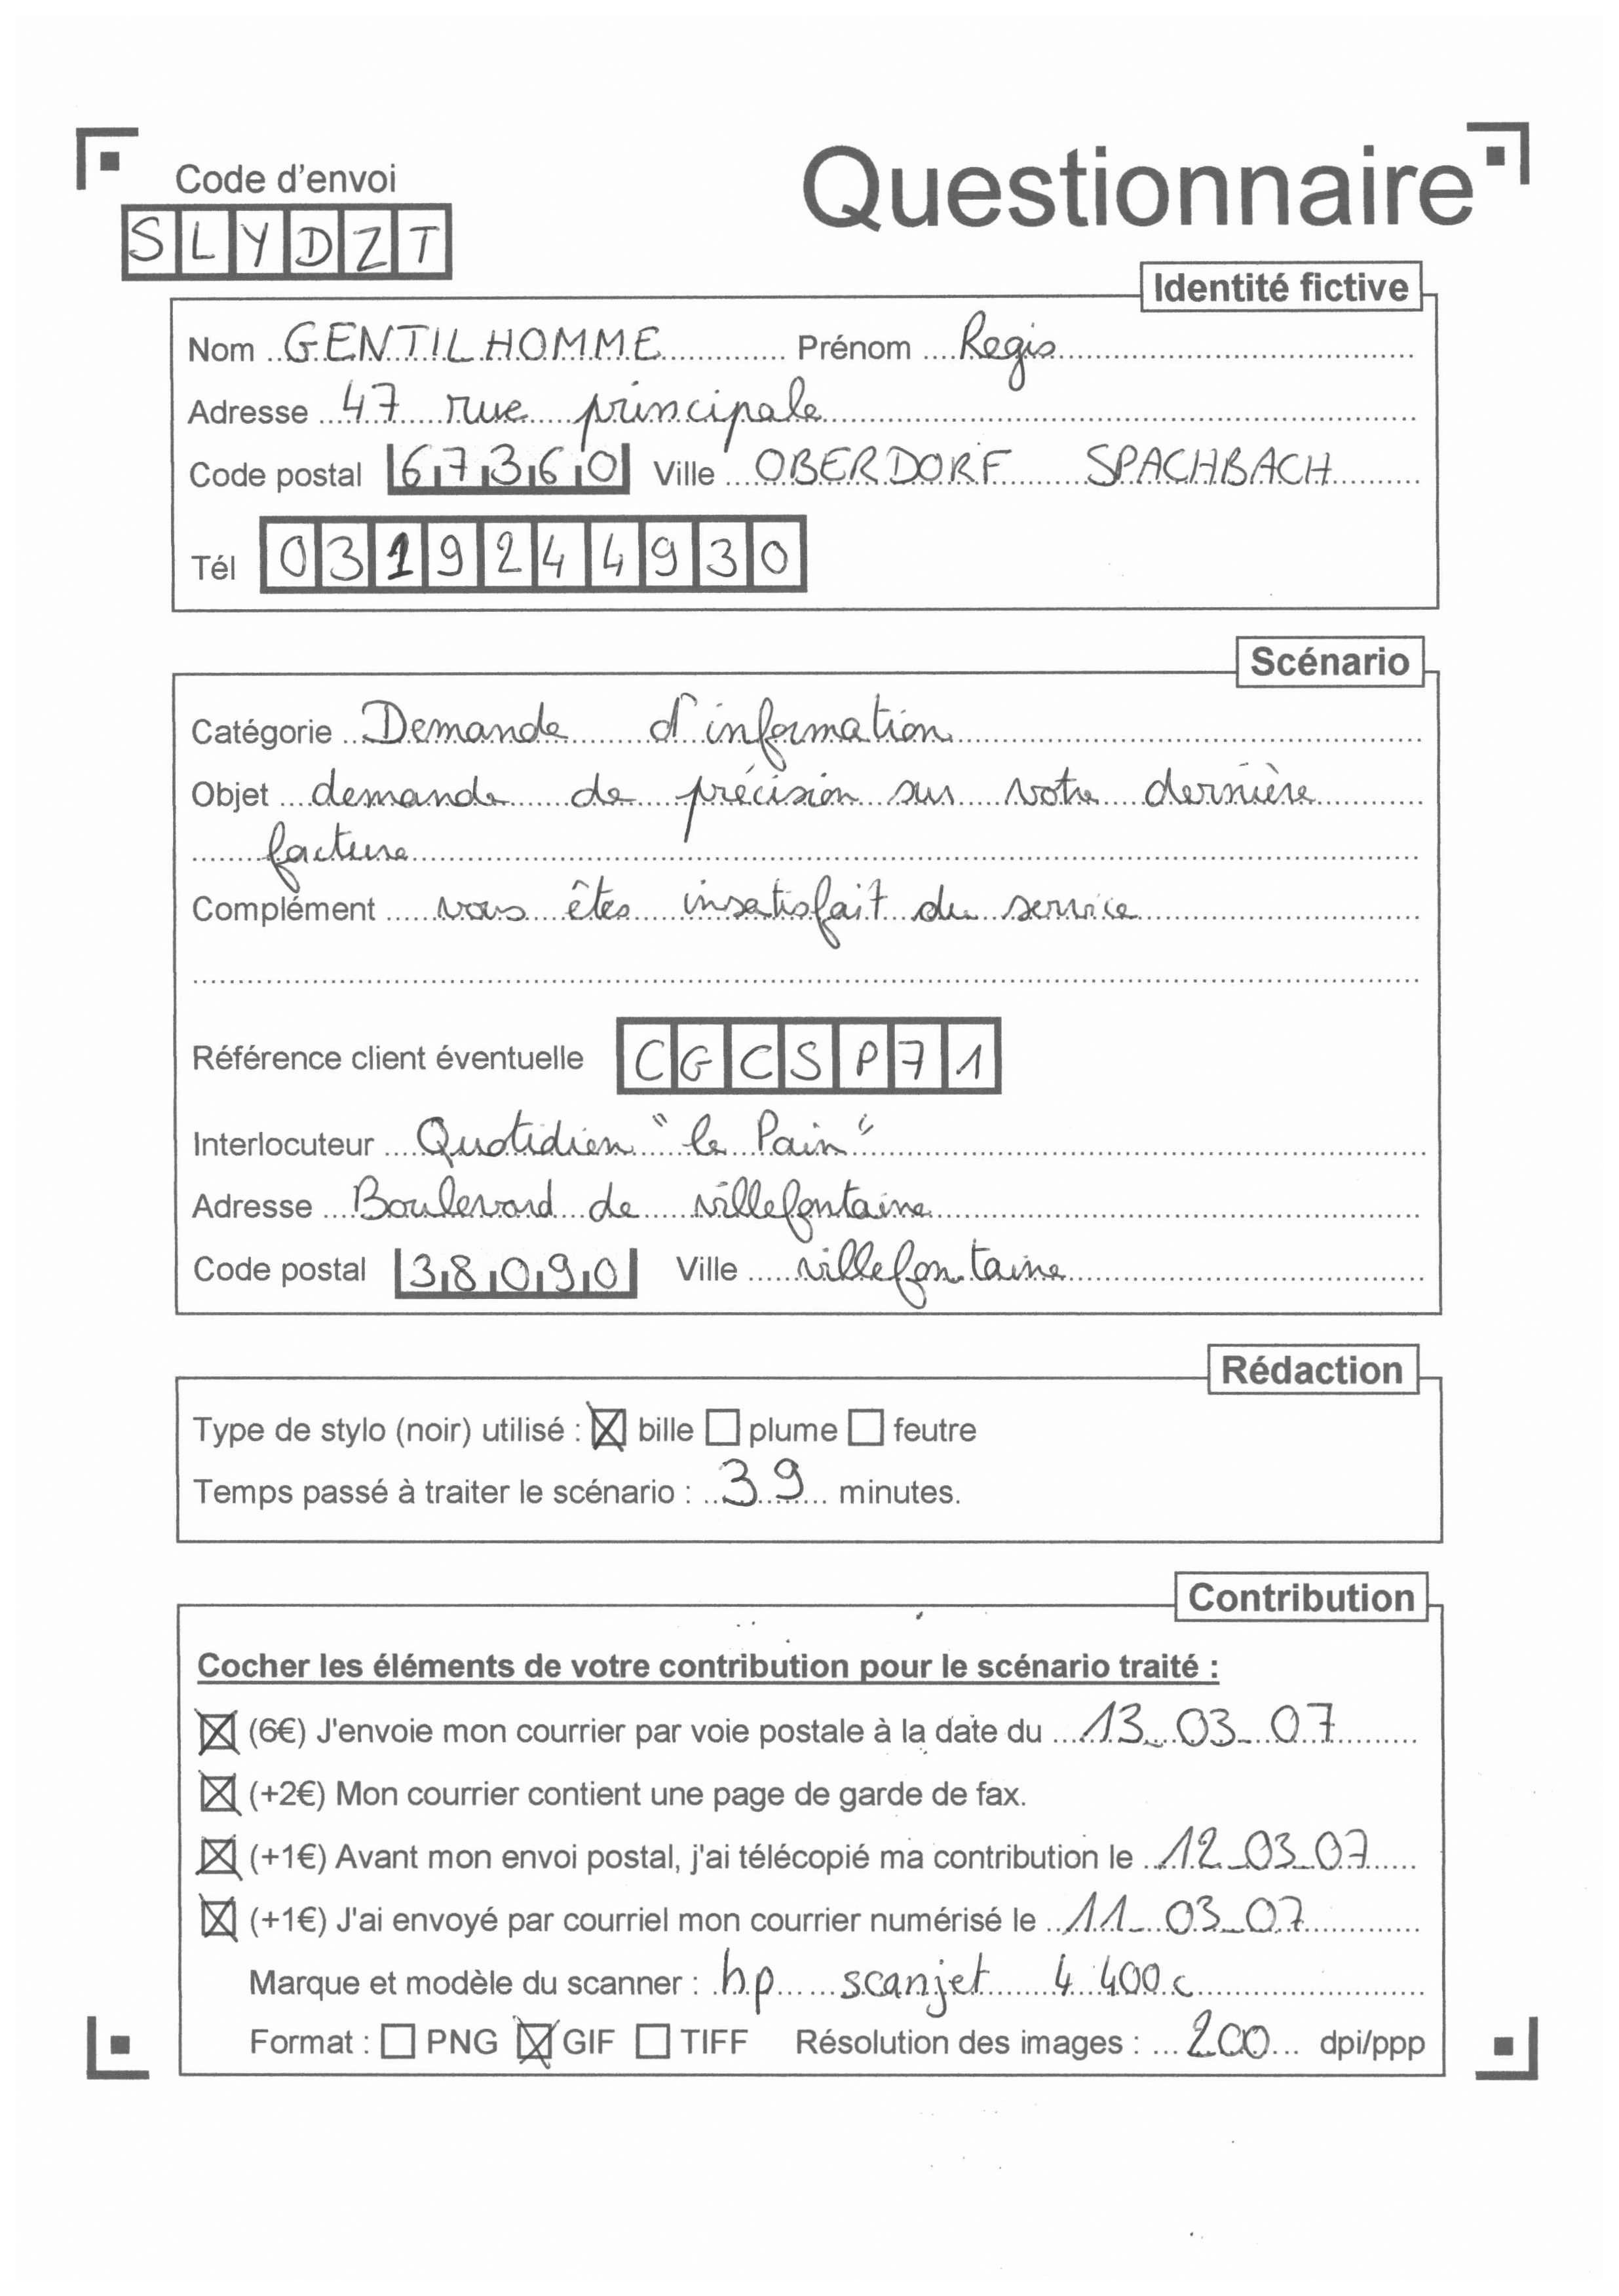 Code d'envoi
Questionnaire
SLYDZT
Identité fictive
Nom GENTILHOMME Prénom Regis
Adresse 47 rue principale
Code postal 67360 Ville OBERDORF SPACHBACH
Tél 0319244930
Scénario
Catégorie Demande d'information
Objet demande de précision sur votre dernière
facture
Complément vous êtes insatisfait du service
Référence client éventuelle CGCSP71
Interlocuteur Quotidien "le Pain"
Adresse Boulevard de villefontaine
Code postal 38090 Ville villefontaine
Rédaction
Type de stylo (noir) utilisé : ☒ bille ☐ plume ☐ feutre
Temps passé à traiter le scénario : 39 minutes.
Contribution
Cocher les éléments de votre contribution pour le scénario traité :
☒ (6€) J'envoie mon courrier par voie postale à la date du 13_03_07
☒ (+2€) Mon courrier contient une page de garde de fax.
☒ (+1€) Avant mon envoi postal, j'ai télécopié ma contribution le 12_03_07
☒ (+1€) J'ai envoyé par courriel mon courrier numérisé le 11_03_07
Marque et modèle du scanner : hp scanjet 4400c
Format : ☐ PNG ☒ GIF ☐ TIFF Résolution des images : 200 dpi/ppp